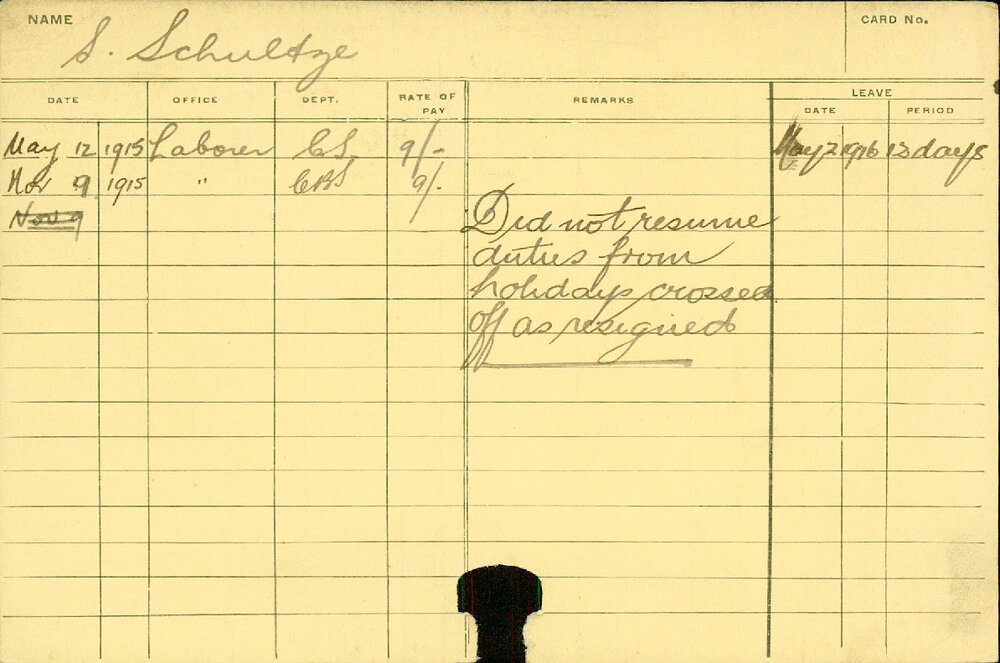 NAME S. Schultze CARD No.
DATE OFFICE DEPT. RATE OF PAY REMARKS LEAVE
DATE PERIOD
May 12 1915 Laborer CS 9/- May 2 1916 13 days
Nov 9 1915 " 9/-
Nov 9
Did not resume
duties from
holidays crossed
off as resigned